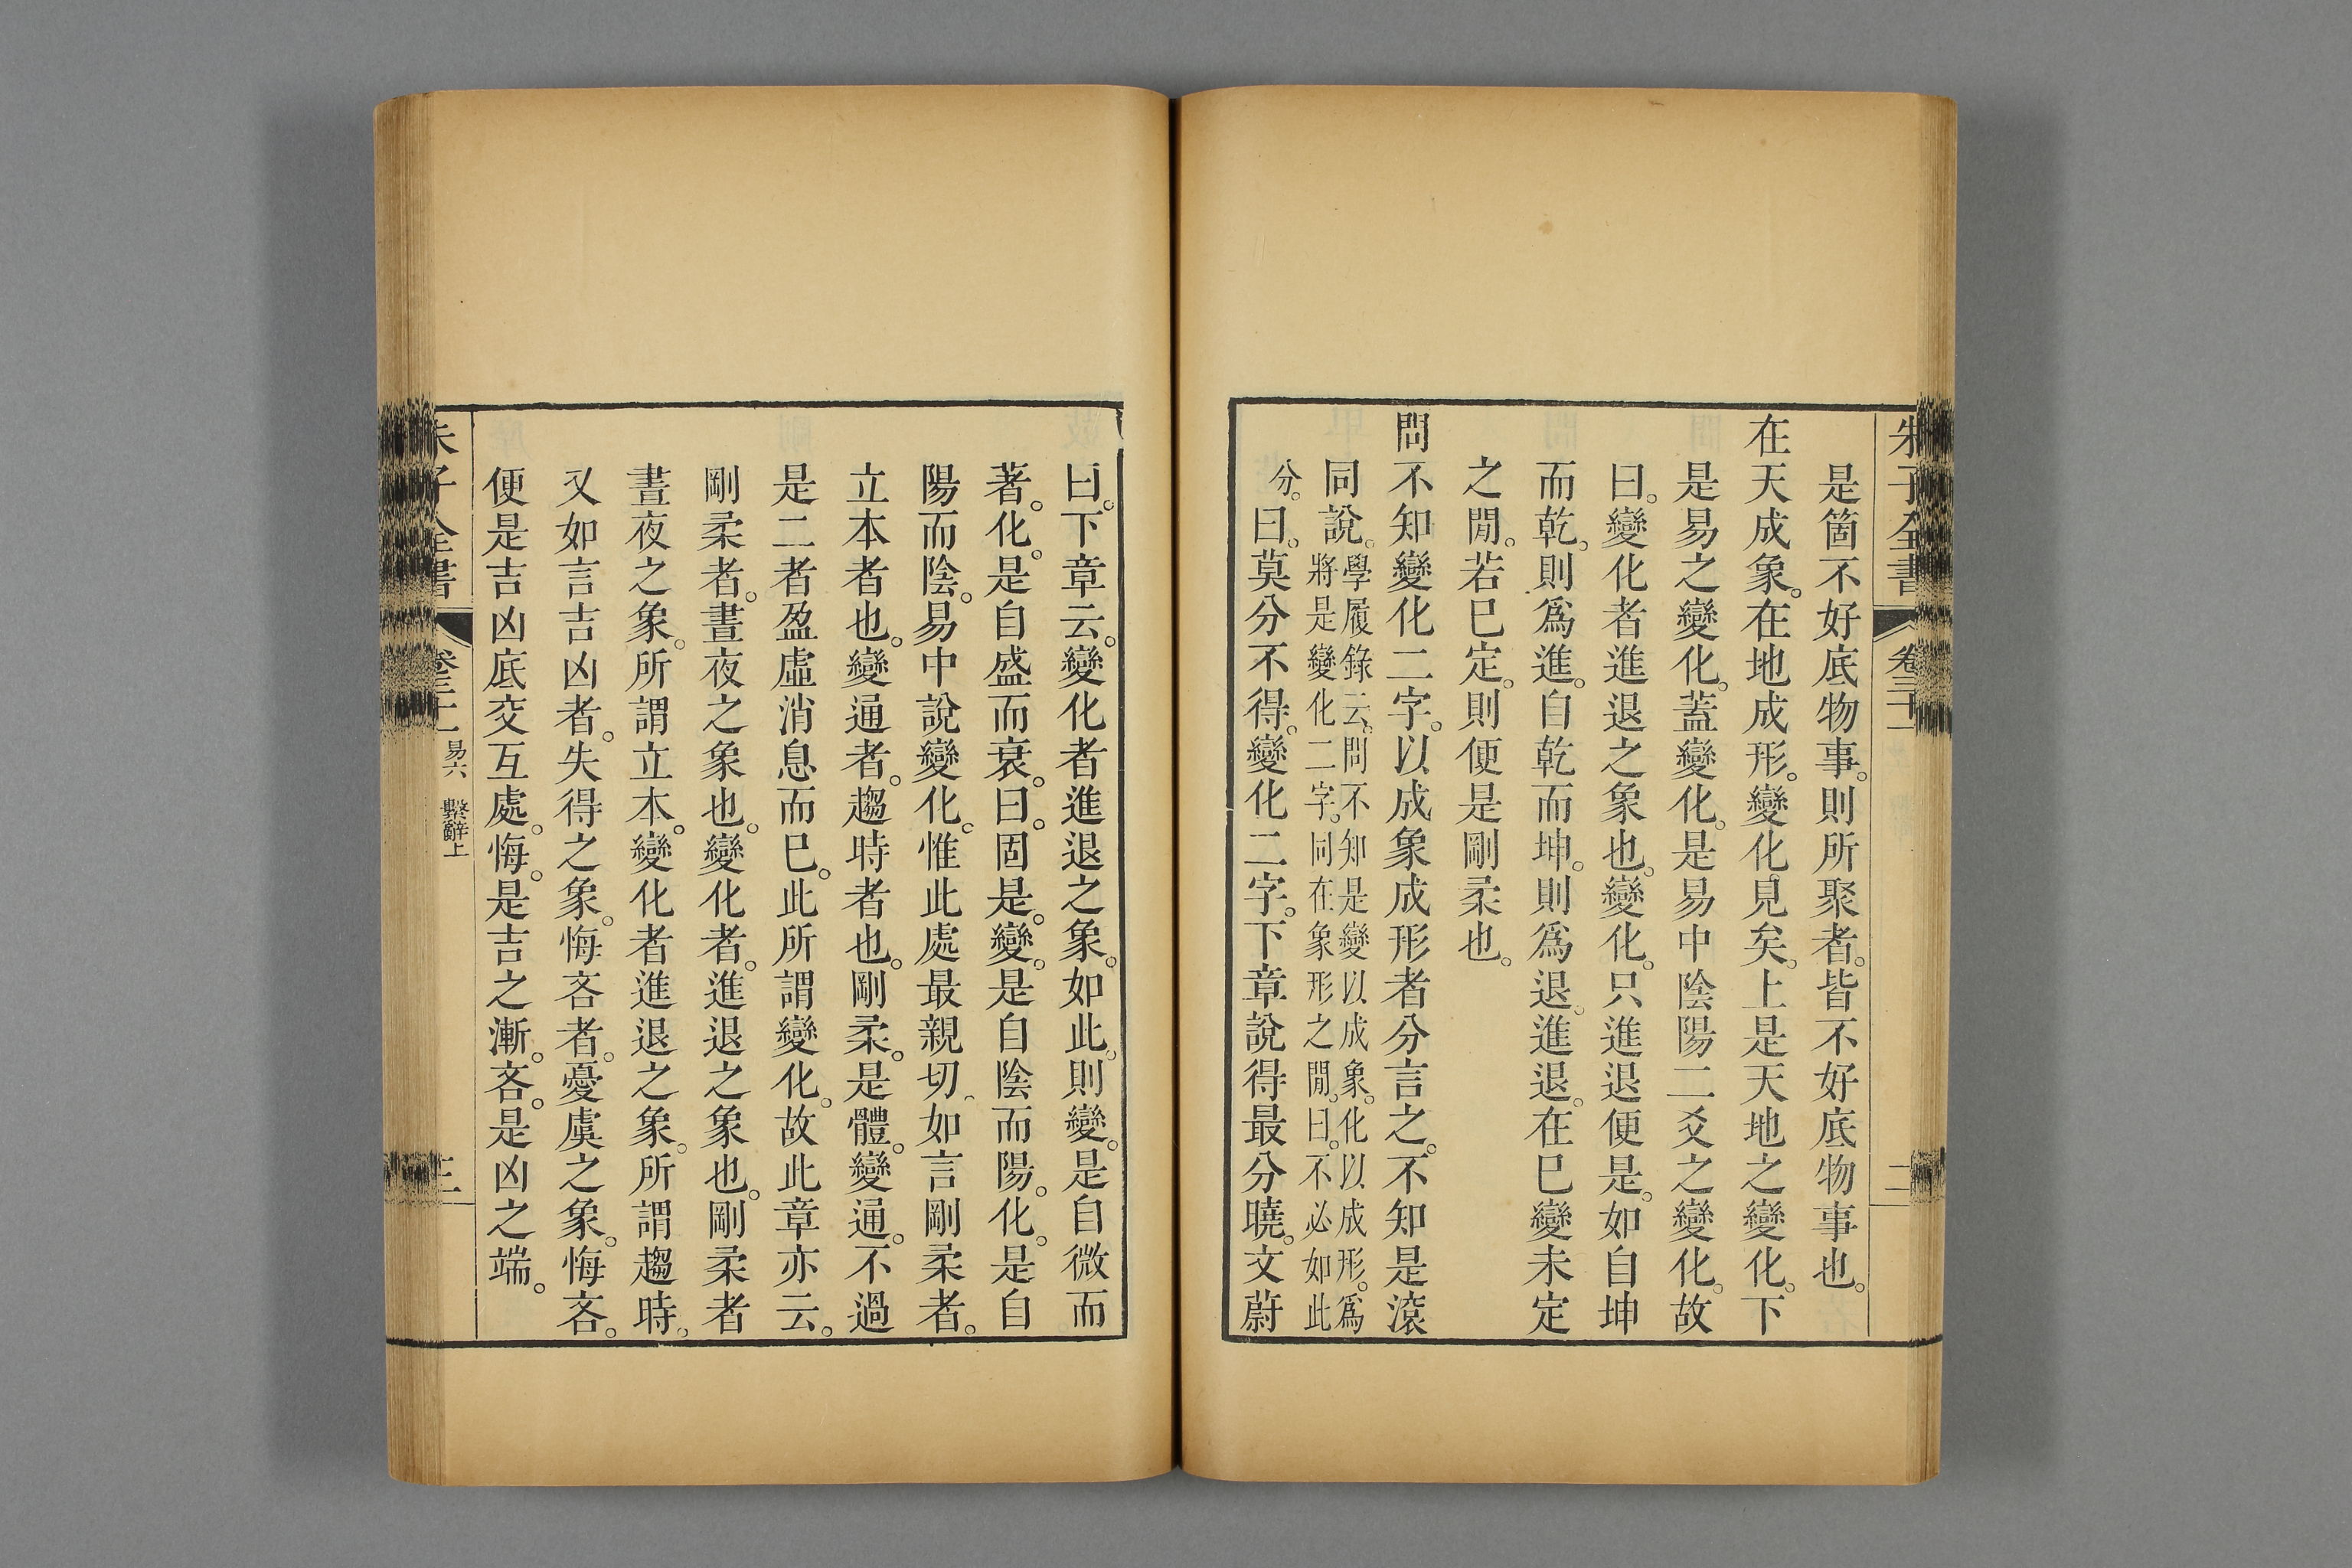 朱子全書 卷三十一 二
是箇不好底物事。則所聚者。皆不好底物事也。
在天成象。在地成形。變化見矣。上是天地之變化。下
是易之變化。蓋變化。是易中陰陽二爻之變化。故
曰。變化者進退之象也。變化。只進退便是。如自坤
而乾。則爲進。自乾而坤。則爲退。進退。在已變未定
之閒。若已定。則便是剛柔也。
問不知變化二字。以成象成形者分言之。不知是滾
同說。學履錄云。問不知是變以成象。化以成形。爲
將是變化二字。同在象形之閒。曰。不必如此
分。曰。莫分不得。變化二字。下章說得最分曉。文蔚
曰。下章云。變化者進退之象。如此。則變。是自微而
著。化。是自盛而衰。曰。固是。變。是自陰而陽。化。是自
陽而陰。易中說變化。惟此處最親切。如言剛柔者。
立本者也。變通者。趨時者也。剛柔。是體。變通。不過
是二者盈虛消息而已。此所謂變化。故此章亦云。
剛柔者。晝夜之象也。變化者。進退之象也。剛柔者
晝夜之象。所謂立本。變化者進退之象。所謂趨時。
又如言吉凶者。失得之象。悔吝者。憂虞之象。悔吝。
便是吉凶底交互處。悔。是吉之漸。吝。是凶之端。
朱子全書 卷三十一 易六 繫辭上 三